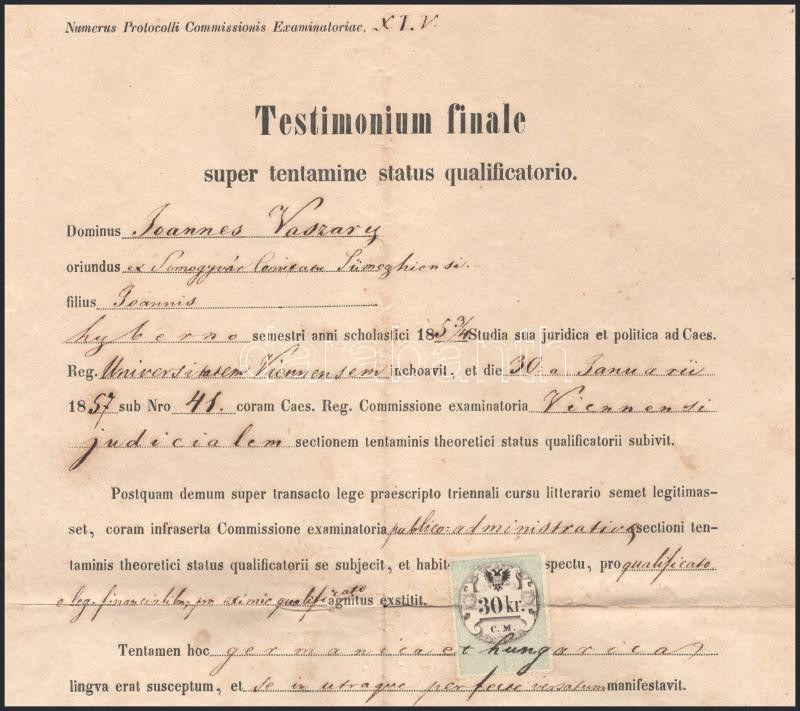 Numerus Protocolli Commissionis Examinatoriae. XLV.
Testimonium finale
super tentamine status qualificatorio.
Dominus Joannes Vaszary
oriundus ex Somogyvár Comitatu Sümeghiensi.
filius Joannis
hyberno semestri anni scholastici 185 3/4 Studia sua juridica et politica ad Caes.
Reg. Universitatem Viennensem inchoavit, et die 30 a Januarii
1857 sub Nro 41. coram Caes. Reg. Commissione examinatoria Viennensi
judicialem sectionem tentaminis theoretici status qualificatorii subivit.
Postquam demum super transacto lege praescripto triennali cursu litterario semet legitimas-
set, coram infraserta Commissione examinatoria publico-administrativae sectioni ten-
taminis theoretici status qualificatorii se subjecit, et habit spectu, pro qualificato
e leg. financialibus pro eximie qualificato agnitus exstitit.
30 kr.
C. M.
Tentamen hoc germanica et hungarica
lingva erat susceptum, et se in utraque perfecte versatum manifestavit.
darabanth